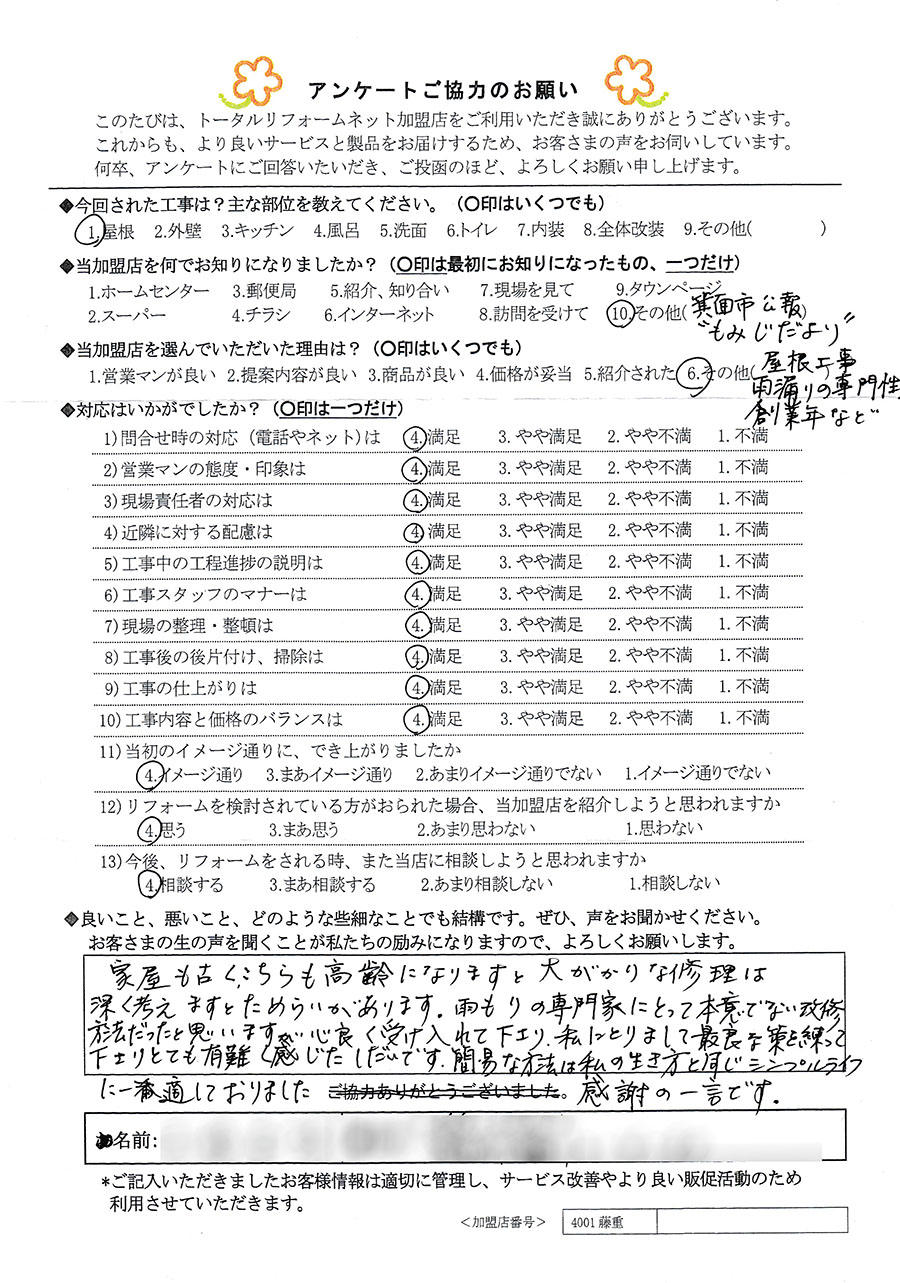 アンケートご協力のお願い
このたびは、トータルリフォームネット加盟店をご利用いただき誠にありがとうございます。
これからも、より良いサービスと製品をお届けするため、お客さまの声をお伺いしています。
何卒、アンケートにご回答いたいだき、ご投函のほど、よろしくお願い申し上げます。
◆今回された工事は？主な部位を教えてください。（〇印はいくつでも）
1.屋根 2.外壁 3.キッチン 4.風呂 5.洗面 6.トイレ 7.内装 8.全体改装 9.その他( )
◆当加盟店を何でお知りになりましたか？（〇印は最初にお知りになったもの、一つだけ）
1.ホームセンター 3.郵便局 5.紹介、知り合い 7.現場を見て 9.タウンページ
2.スーパー 4.チラシ 6.インターネット 8.訪問を受けて 10.その他(箕面市公報)
"もみじだより"
◆当加盟店を選んでいただいた理由は？（〇印はいくつでも）
1.営業マンが良い 2.提案内容が良い 3.商品が良い 4.価格が妥当 5.紹介された 6.その他(屋根工事
雨漏りの専門性
創業年など
◆対応はいかがでしたか？（〇印は一つだけ）
1)問合せ時の対応（電話やネット)は 4.満足 3.やや満足 2.やや不満 1.不満
2)営業マンの態度・印象は 4.満足 3.やや満足 2.やや不満 1.不満
3)現場責任者の対応は 4.満足 3.やや満足 2.やや不満 1.不満
4)近隣に対する配慮は 4.満足 3.やや満足 2.やや不満 1.不満
5)工事中の工程進捗の説明は 4.満足 3.やや満足 2.やや不満 1.不満
6)工事スタッフのマナーは 4.満足 3.やや満足 2.やや不満 1.不満
7)現場の整理・整頓は 4.満足 3.やや満足 2.やや不満 1.不満
8)工事後の後片付け、掃除は 4.満足 3.やや満足 2.やや不満 1.不満
9)工事の仕上がりは 4.満足 3.やや満足 2.やや不満 1.不満
10)工事内容と価格のバランスは 4.満足 3.やや満足 2.やや不満 1.不満
11)当初のイメージ通りに、でき上がりましたか
4.イメージ通り 3.まあイメージ通り 2.あまりイメージ通りでない 1.イメージ通りでない
12)リフォームを検討されている方がおられた場合、当加盟店を紹介しようと思われますか
4.思う 3.まあ思う 2.あまり思わない 1.思わない
13)今後、リフォームをされる時、また当店に相談しようと思われますか
4.相談する 3.まあ相談する 2.あまり相談しない 1.相談しない
◆良いこと、悪いこと、どのような些細なことでも結構です。ぜひ、声をお聞かせください。
お客さまの生の声を聞くことが私たちの励みになりますので、よろしくお願いします。
家屋も古く、こちらも高齢になりますと大がかりな修理は
深く考えますとためらいがあります。雨もりの専門家にとって本意でない改修
方法だったと思いますが心良く受け入れて下エり、私にとりまして最良な策を練って
下エりとても有難く感じたしだいです。簡易な方法は私の生き方と同じシンプルライフ
に一番適しておりました ご協力ありがとうございました。感謝の一言です。
お名前:
*ご記入いただきましたお客様情報は適切に管理し、サービス改善やより良い販促活動のため
利用させていただきます。
＜加盟店番号＞ 4001 藤重